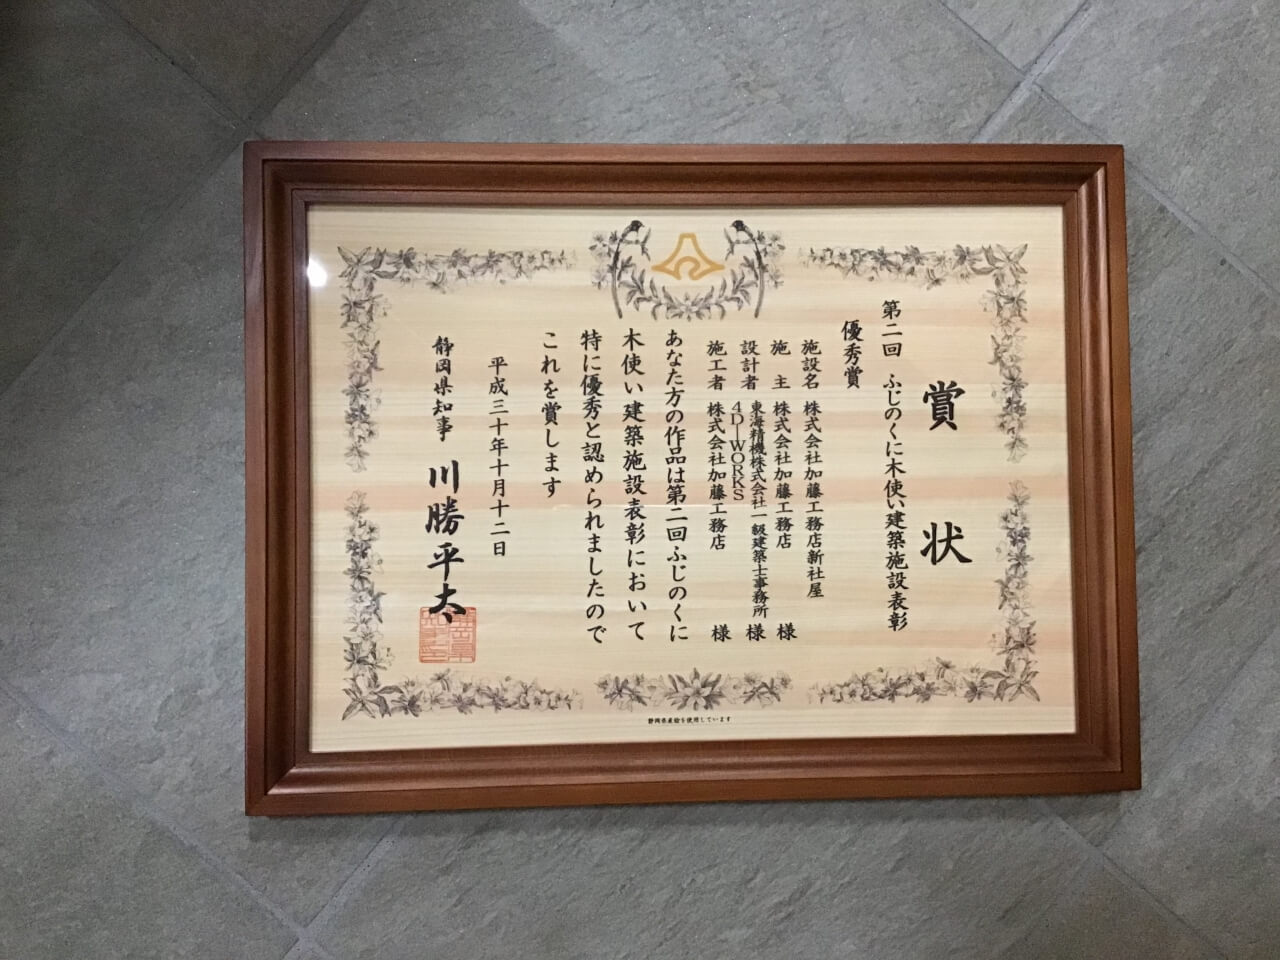 賞状
第二回 ふじのくに木使い建築施設表彰
優秀賞
施設名 株式会社加藤工務店新社屋
施 主 株式会社加藤工務店 様
設計者 東海精機株式会社一級建築士事務所 様
4D-WORKS
施工者 株式会社加藤工務店 様
あなた方の作品は第二回ふじのくに
木使い建築施設表彰において
特に優秀と認められましたので
これを賞します
平成三十年十月十二日
静岡県知事 川勝平太
静岡県産檜を使用しています